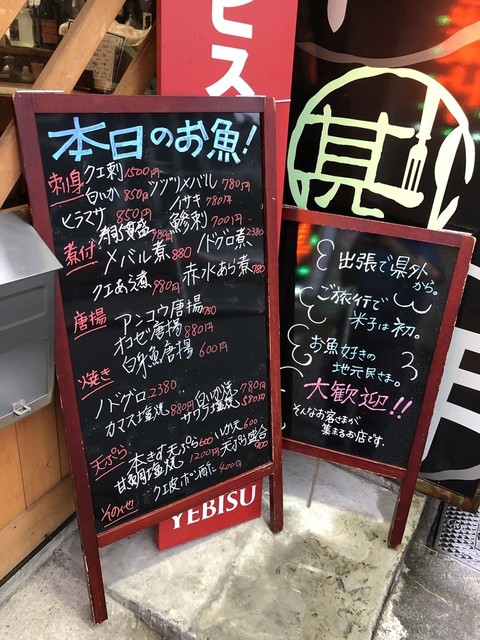 ビス
甚
本日のお魚!
刺身 クエ刺 1500円
白いか 850円 ツヅリメバル 780円
ヒラマサ 850円 イサキ 780円
鯵刺 700円
780円
煮付 メバル煮 880 ノドグロ煮 2380
クエあら煮 980円 赤水あら煮 780
唐揚 アンコウ唐揚 780
オコゼ唐揚 880円
白身魚唐揚 600円
焼き
ノドグロ 2380 白いか焼 780円
カマス塩焼 880円 サワラ塩焼 580円
天ぷら 本きす天ぷら 600 いか天 600
甘鯛塩焼 1200円 天ぷら盛合 900
その他 クエ皮ポン酢に 400円
YEBISU
出張で県外から。
ご旅行で
米子は初。
お魚好きの
地元民さま。
大歓迎!!
そんなお客さまが
集まるお店です。